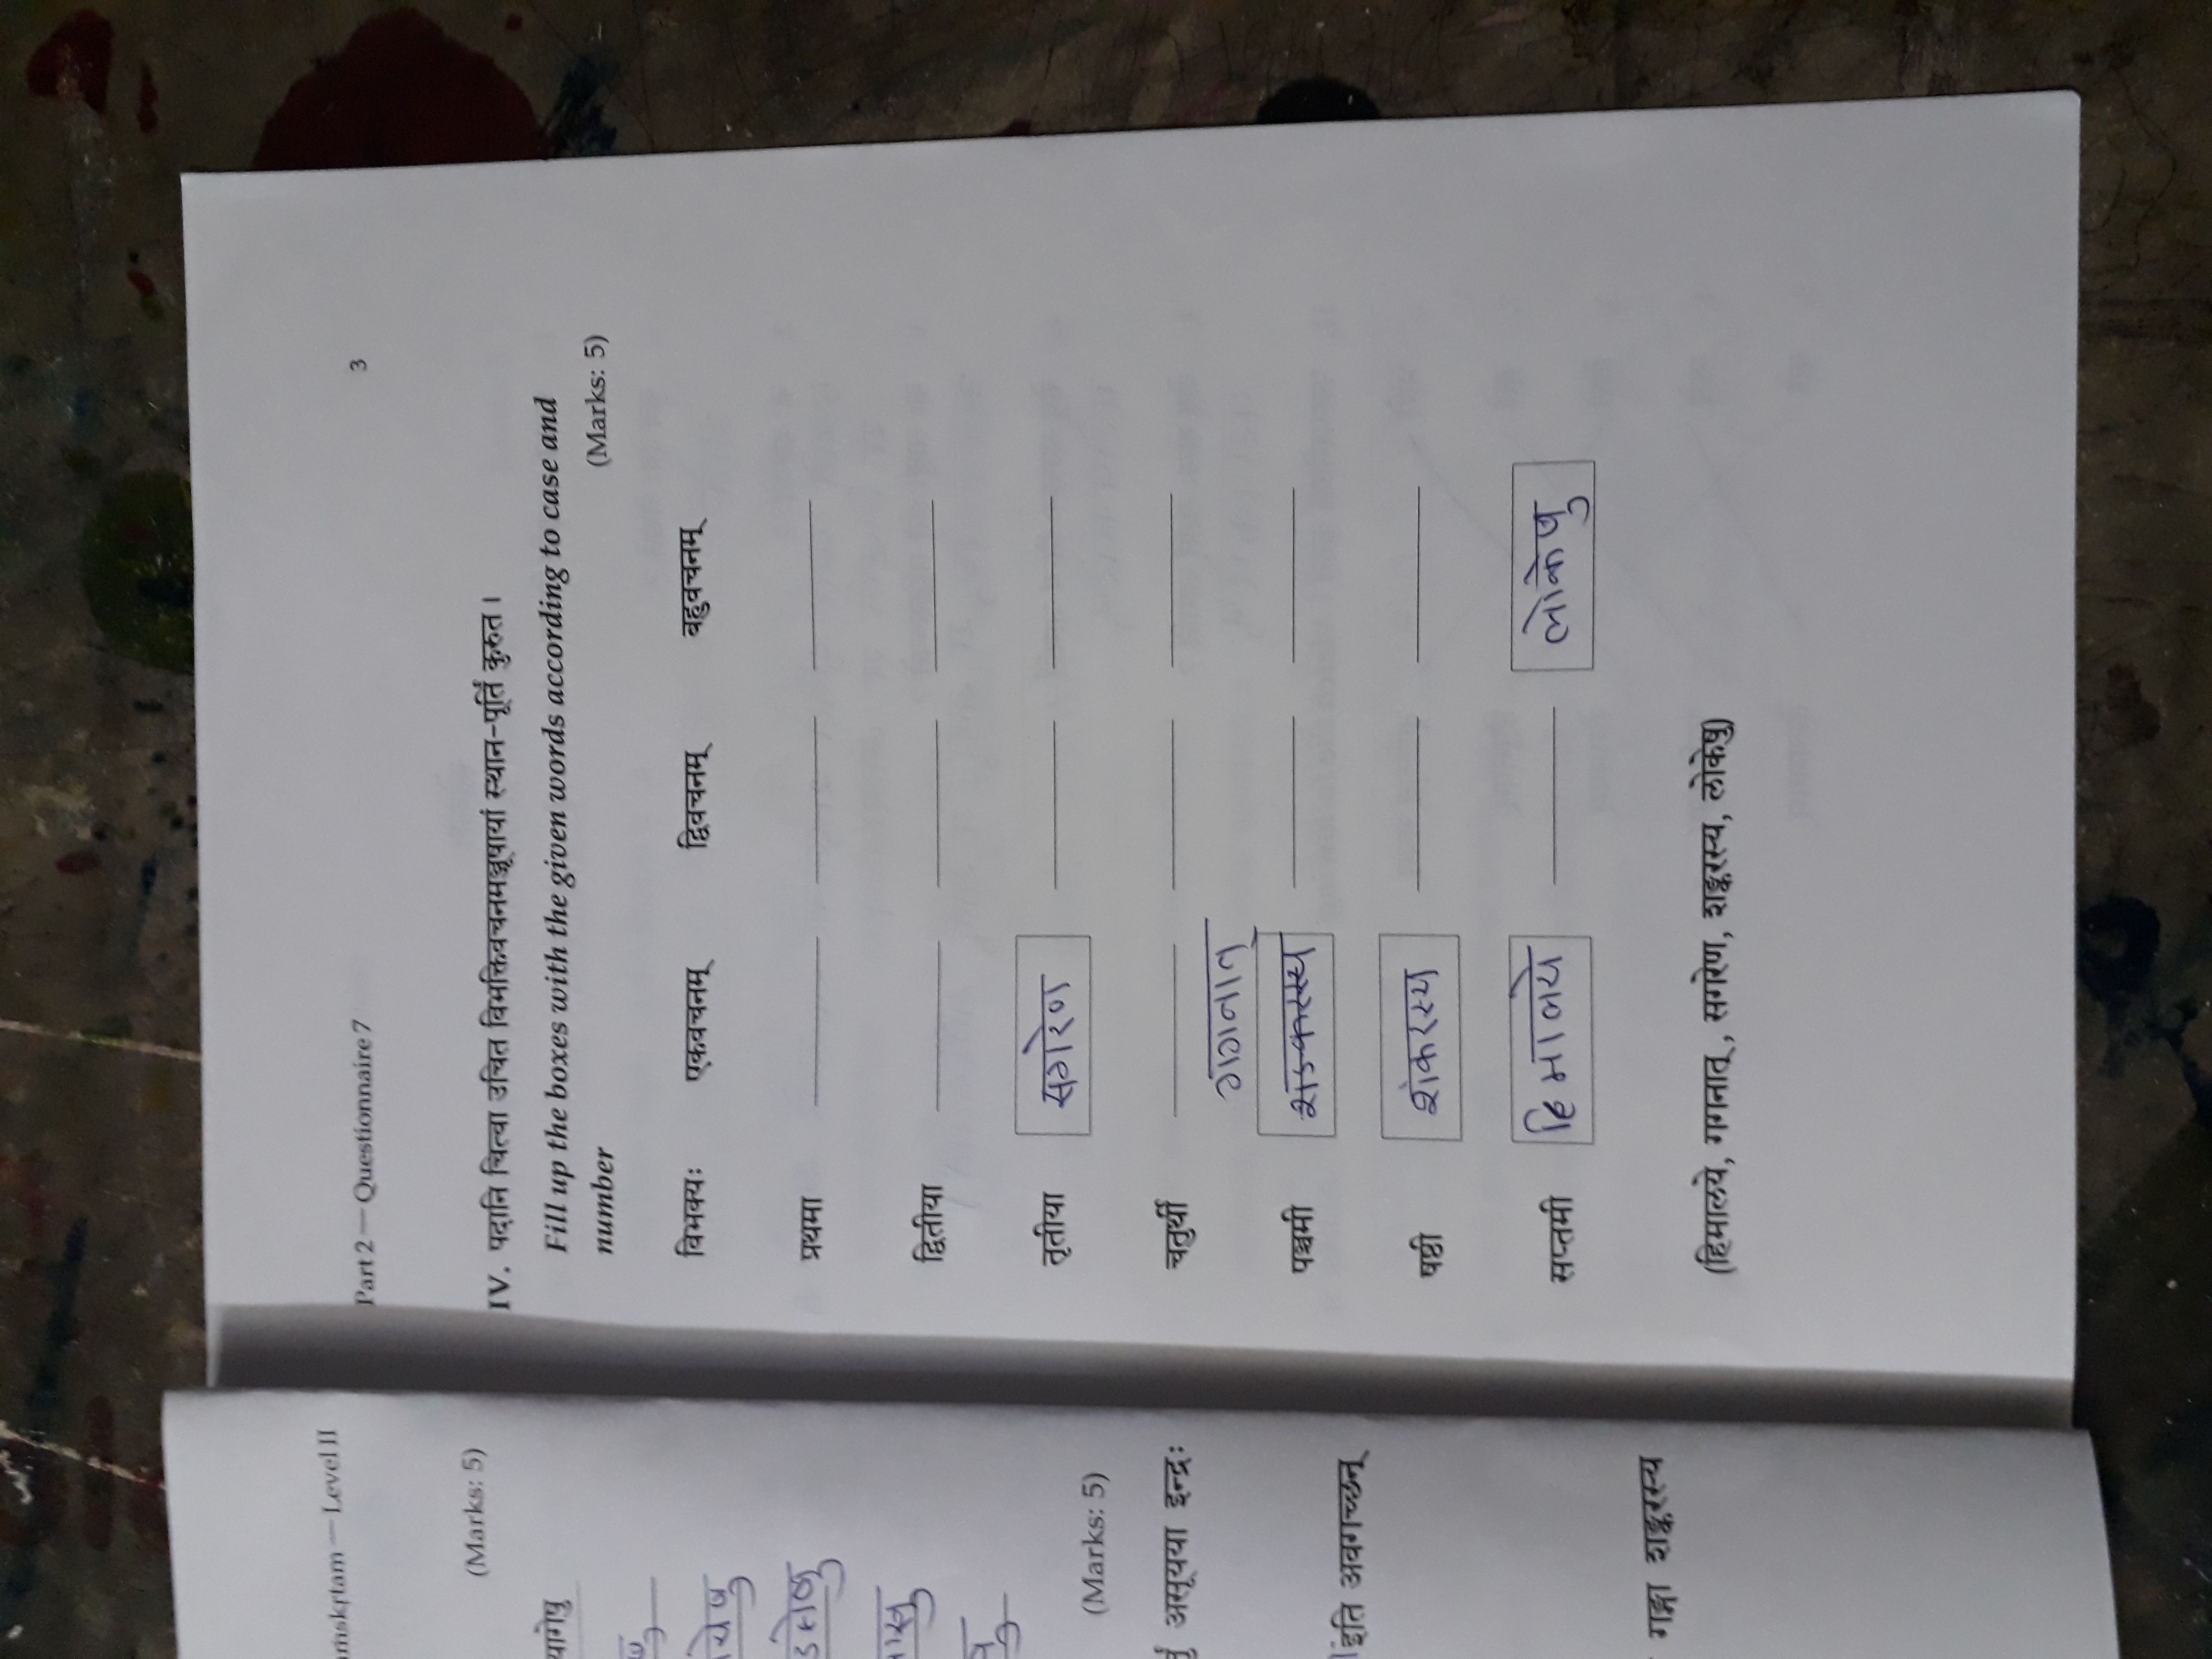 amskṛtam — Level II
(Marks: 5)
यागेषु
(Marks: 5)
असूयया इन्द्रः
इति अवगच्छन्
गङ्गा शङ्करस्य
Part 2 — Questionnaire 7 3
IV. पदानि चित्वा उचित विभक्तिवचनमञ्जूषायां स्थान-पूर्तिं कुरुत ।
Fill up the boxes with the given words according to case and
number (Marks: 5)
विभक्यः एकवचनम् द्विवचनम् बहुवचनम्
प्रथमा
द्वितीया
तृतीया सगरेण
चतुर्थी
गगनात्
पञ्चमी शङ्करस्य
षष्ठी शंकरस्य
सप्तमी हिमालये लोकेषु
(हिमालये, गगनात् , सगरेण, शङ्करस्य, लोकेषु)